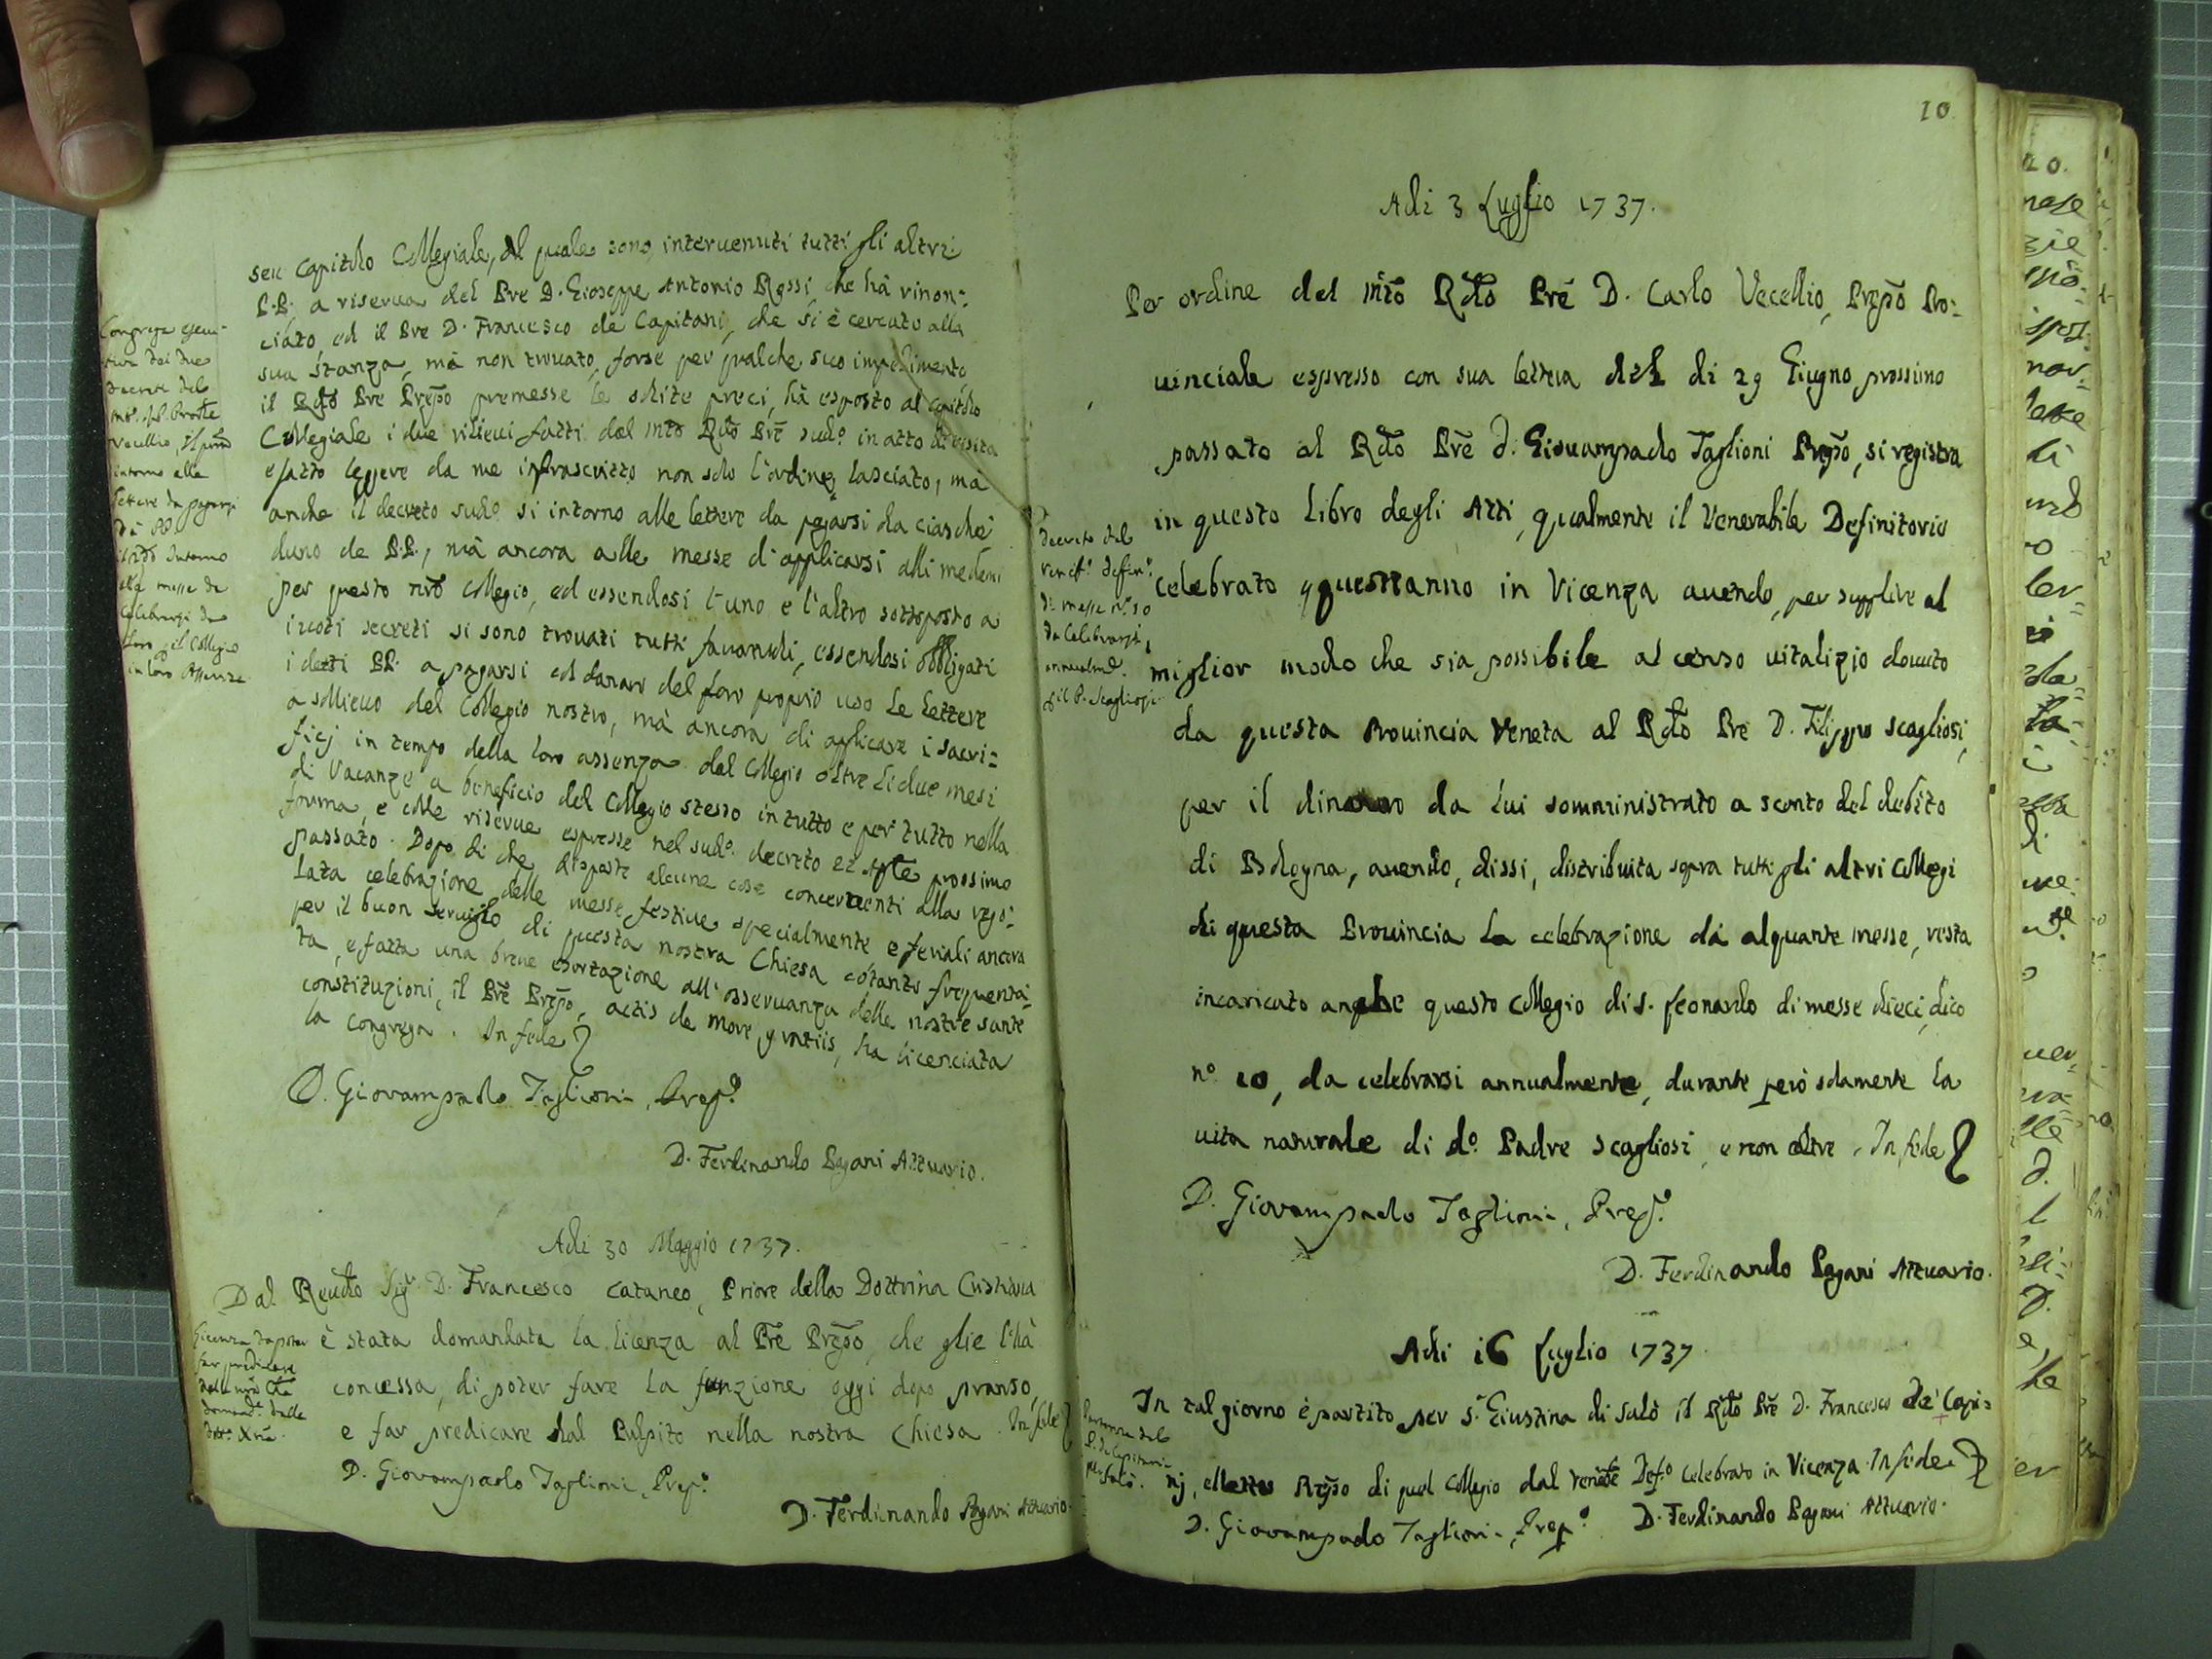 seu Capitolo Collegiale, al quale sono intervenuti tutti gli altri
P.P. a riserva del Pre D. Gioseppe Antonio Rossi, che hà rinon-
ciato, ed il Pre D. Francesco de Capitani, che si è cercato alla
sua stanza, mà non trovato, forse per qualche suo impedimento,
il Rdo Pre Preposo premesse le solite preci, hà esposto al Capitolo
Collegiale i due rilievi fatti dal mto Rdo Pre sudo. in atto di visita
e fatto leggere da me infrascritto non solo l'ordine lasciato, ma
anche il decreto sudo. si intorno alle lettere da pagarsi da ciasche
duno de P.P., mà ancora alle messe d'applicarsi alli medemi
per questo nro Collegio, ed essendosi l'uno e l'altro sottoposto a
i voti secreti si sono trovati tutti favorevoli, essendosi obbligati
i detti PP. a pagarsi col danaro del loro proprio uso le lettere
a sollievo del Collegio nostro, mà ancora di applicare i sacri-
ficj in tempo della loro assenza dal Collegio oltre li due mesi
di Vacanze a beneficio del Collegio stesso in tutto e per tutto nella
forma, e colle riserve espresse nel sudo. decreto 22 Aple prossimo
passato. Dopo di che disposte alcune cose concernenti alla rego-
lata celebrazione delle messe festive specialmente, e feriali ancora
per il buon servigio di questa nostra Chiesa cotanto frequenta-
ta, e fatta una breve esortazione all'osservanza delle nostre sante
constituzioni, il Pre Preposo, actis de more gratiis, ha licenziata
la Congrega. In fede
D. Giovampaolo Taglioni, Prepo.
D. Ferdinando Pagani Attuario.
Congrega
dei due
decreti del
Vecellio, il primo
intorno alle
lettere da pagarsi
intorno
alle messe da
celebrarsi da
loro il Collegio
in loro Assenze
Adi 30 Maggio 1737.
Dal Revdo Sigr D. Francesco Cataneo, Priore della Dottrina Cristiana
è stata domandata la licenza al Pre Preposo, che glie l'hà
concessa, di poter fare la funzione oggi dopo pranso,
e far predicare dal Pulpito nella nostra Chiesa. In fede
D. Giovampaolo Taglioni, Prepo.
D. Ferdinando Pagani Attuario.
Licenza da poter
far predicare
nella nra
della
10
Adi 3 Luglio 1737.
Per ordine del mto Rdo Pre D. Carlo Vecellio, Preposo Pro-
vinciale espresso con sua lettera del di 29 Giugno prossimo
passato al Rdo Pre D. Giovampaolo Taglioni Preposo, si registra
in questo Libro degli Atti, qualmente il Venerabile Definitorio
celebrato quest'anno in Vicenza avendo, per supplire al
miglior modo che sia possibile al censo vitalizio dovuto
da questa Provincia Veneta al Rdo Pre D. Filippo Scagliosi,
per il dinaro da lui somministrato a sconto del debito
di Bologna, avendo, dissi, distribuita sopra tutti gli altri Collegi
di questa Provincia la celebrazione di alquante messe, resta
incaricato anche questo Collegio di S. Leonardo di messe dieci, dico
no. 10, da celebrarsi annualmente, durante però solamente la
vita naturale di do. Padre Scagliosi, e non oltre. In fede
D. Giovampaolo Taglioni, Prepo.
D. Ferdinando Pagani Attuario.
Decreto del
di messe no. 10
da celebrarsi
annualme.
il P. Scagliosi
Adi 16 Luglio 1737
In tal giorno è partito per S. Giustina di Salò il Rdo Pre D. Francesco de' Capi-
nj, eletto Preposo di quel Collegio dal Venble Defo. celebrato in Vicenza. In fede
D. Giovampaolo Taglioni, Prepo. D. Ferdinando Pagani Attuario.
Partenza del
P. de Capitani
per Salò.